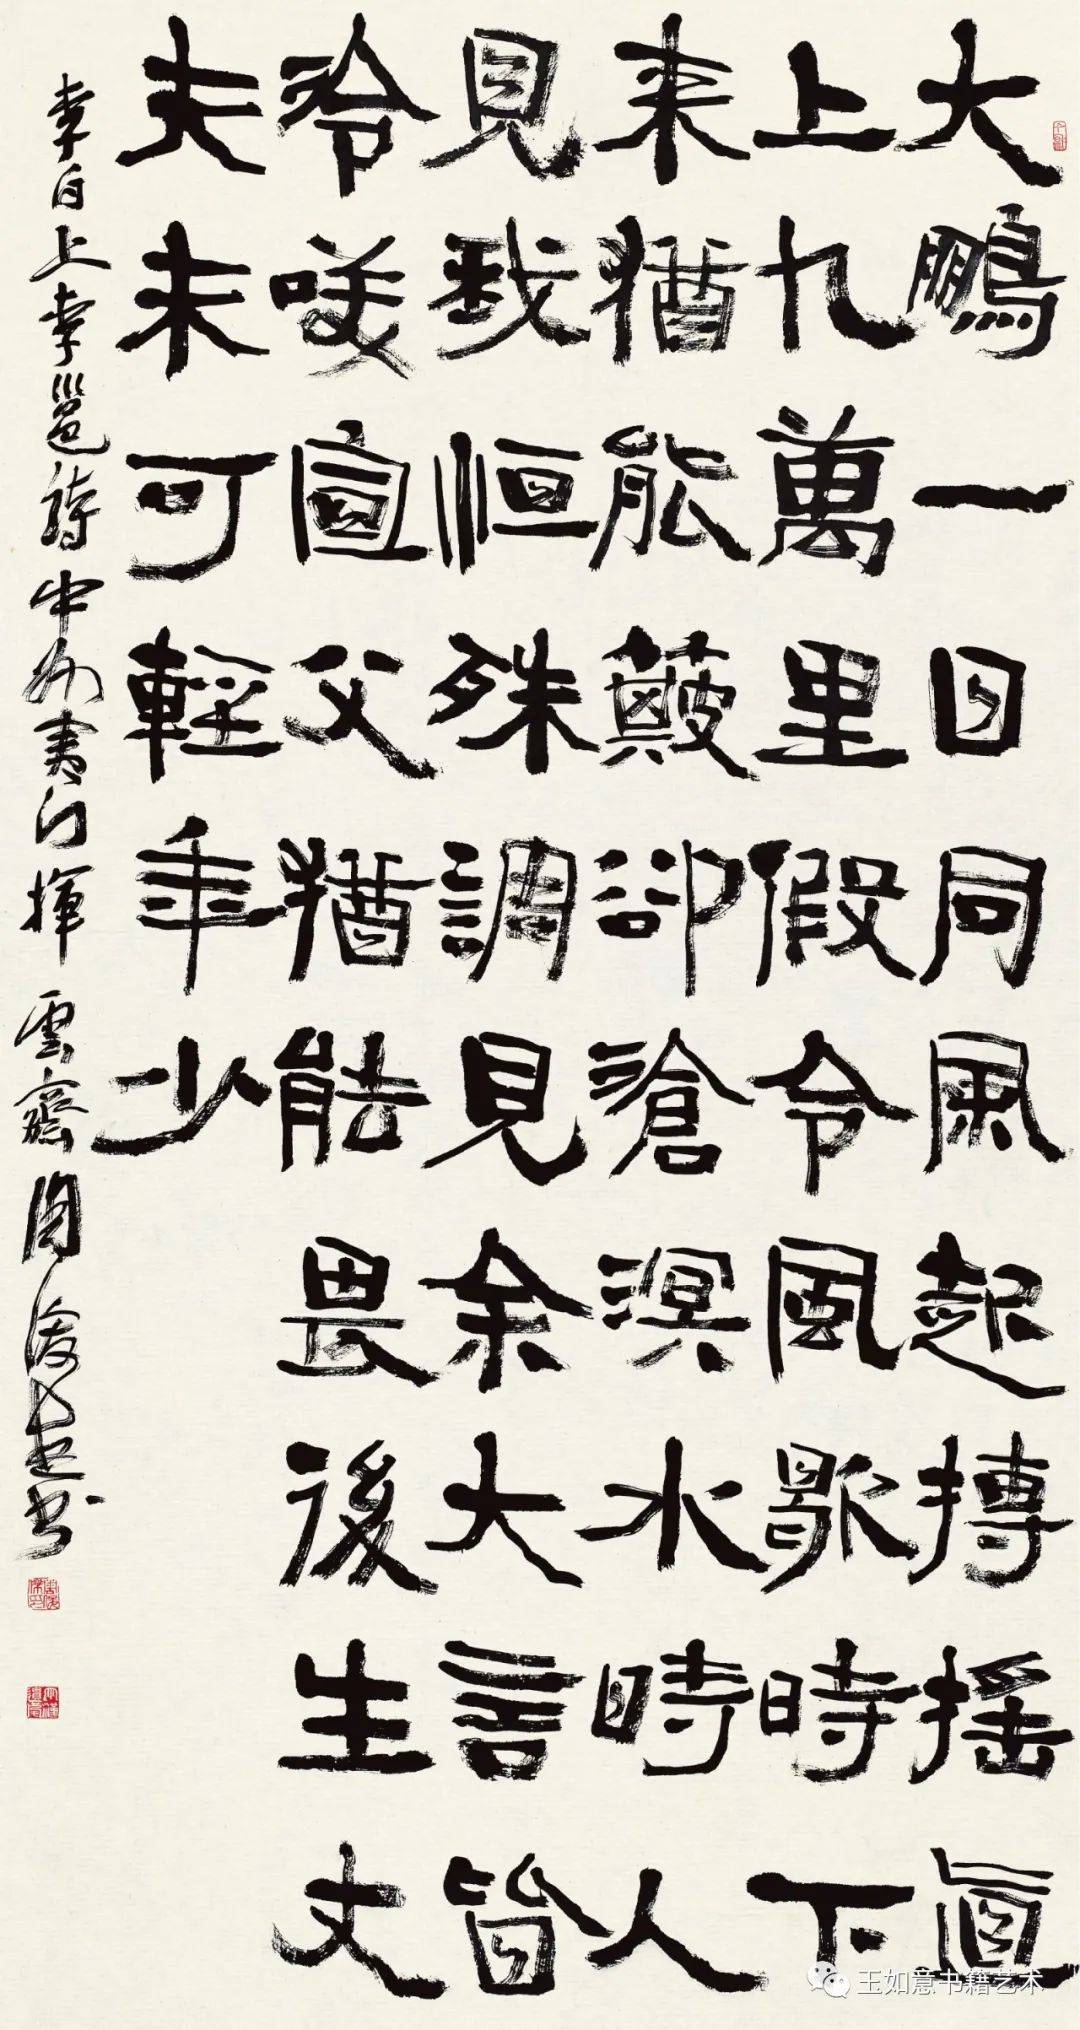 大鵬一日同風起搏摇直
上九萬里假令風歇時下
来猶能簸卻滄溟水時人
見我恒殊調見余大言皆
冷咲宣父猶能畏後生丈
夫未可輕年少
李白上李邕詩中州夷门揮雲齋周俊杰书
玉如意书籍艺术